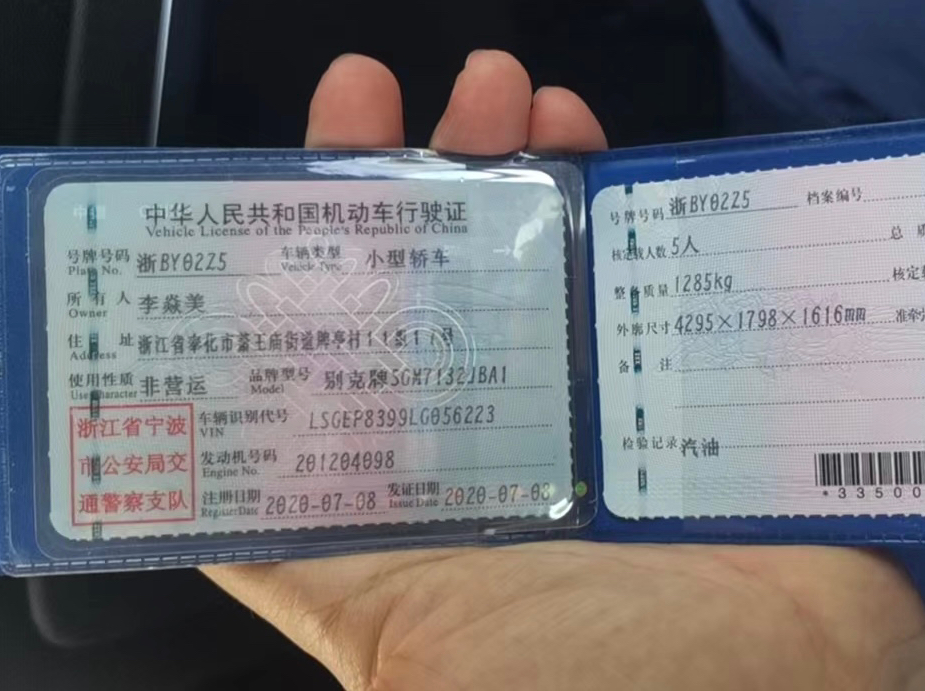 中华人民共和国机动车行驶证
Vehicle License of the People's Republic of China
号牌号码 浙BY02Z5 车辆类型 小型轿车
Plate No. Vehicle Type
所有人 李焱美
Owner
住址 浙江省奉化市萧王庙街道牌亭村11条11号
Address
使用性质 非营运 品牌型号 别克牌SGM7132JBA1
Use Character Model
浙江省宁波
市公安局交
通警察支队
车辆识别代号 LSGEP8399LG056223
VIN
发动机号码 201204098
Engine No.
注册日期 2020-07-08 发证日期 2020-07-08
Register Date Issue Date
号牌号码 浙BY02Z5 档案编号
核定载人数 5人 总质
整备质量 1285kg 核定
外廓尺寸 4295×1798×1616mm 准牵
备注
检验记录 汽油
*33500